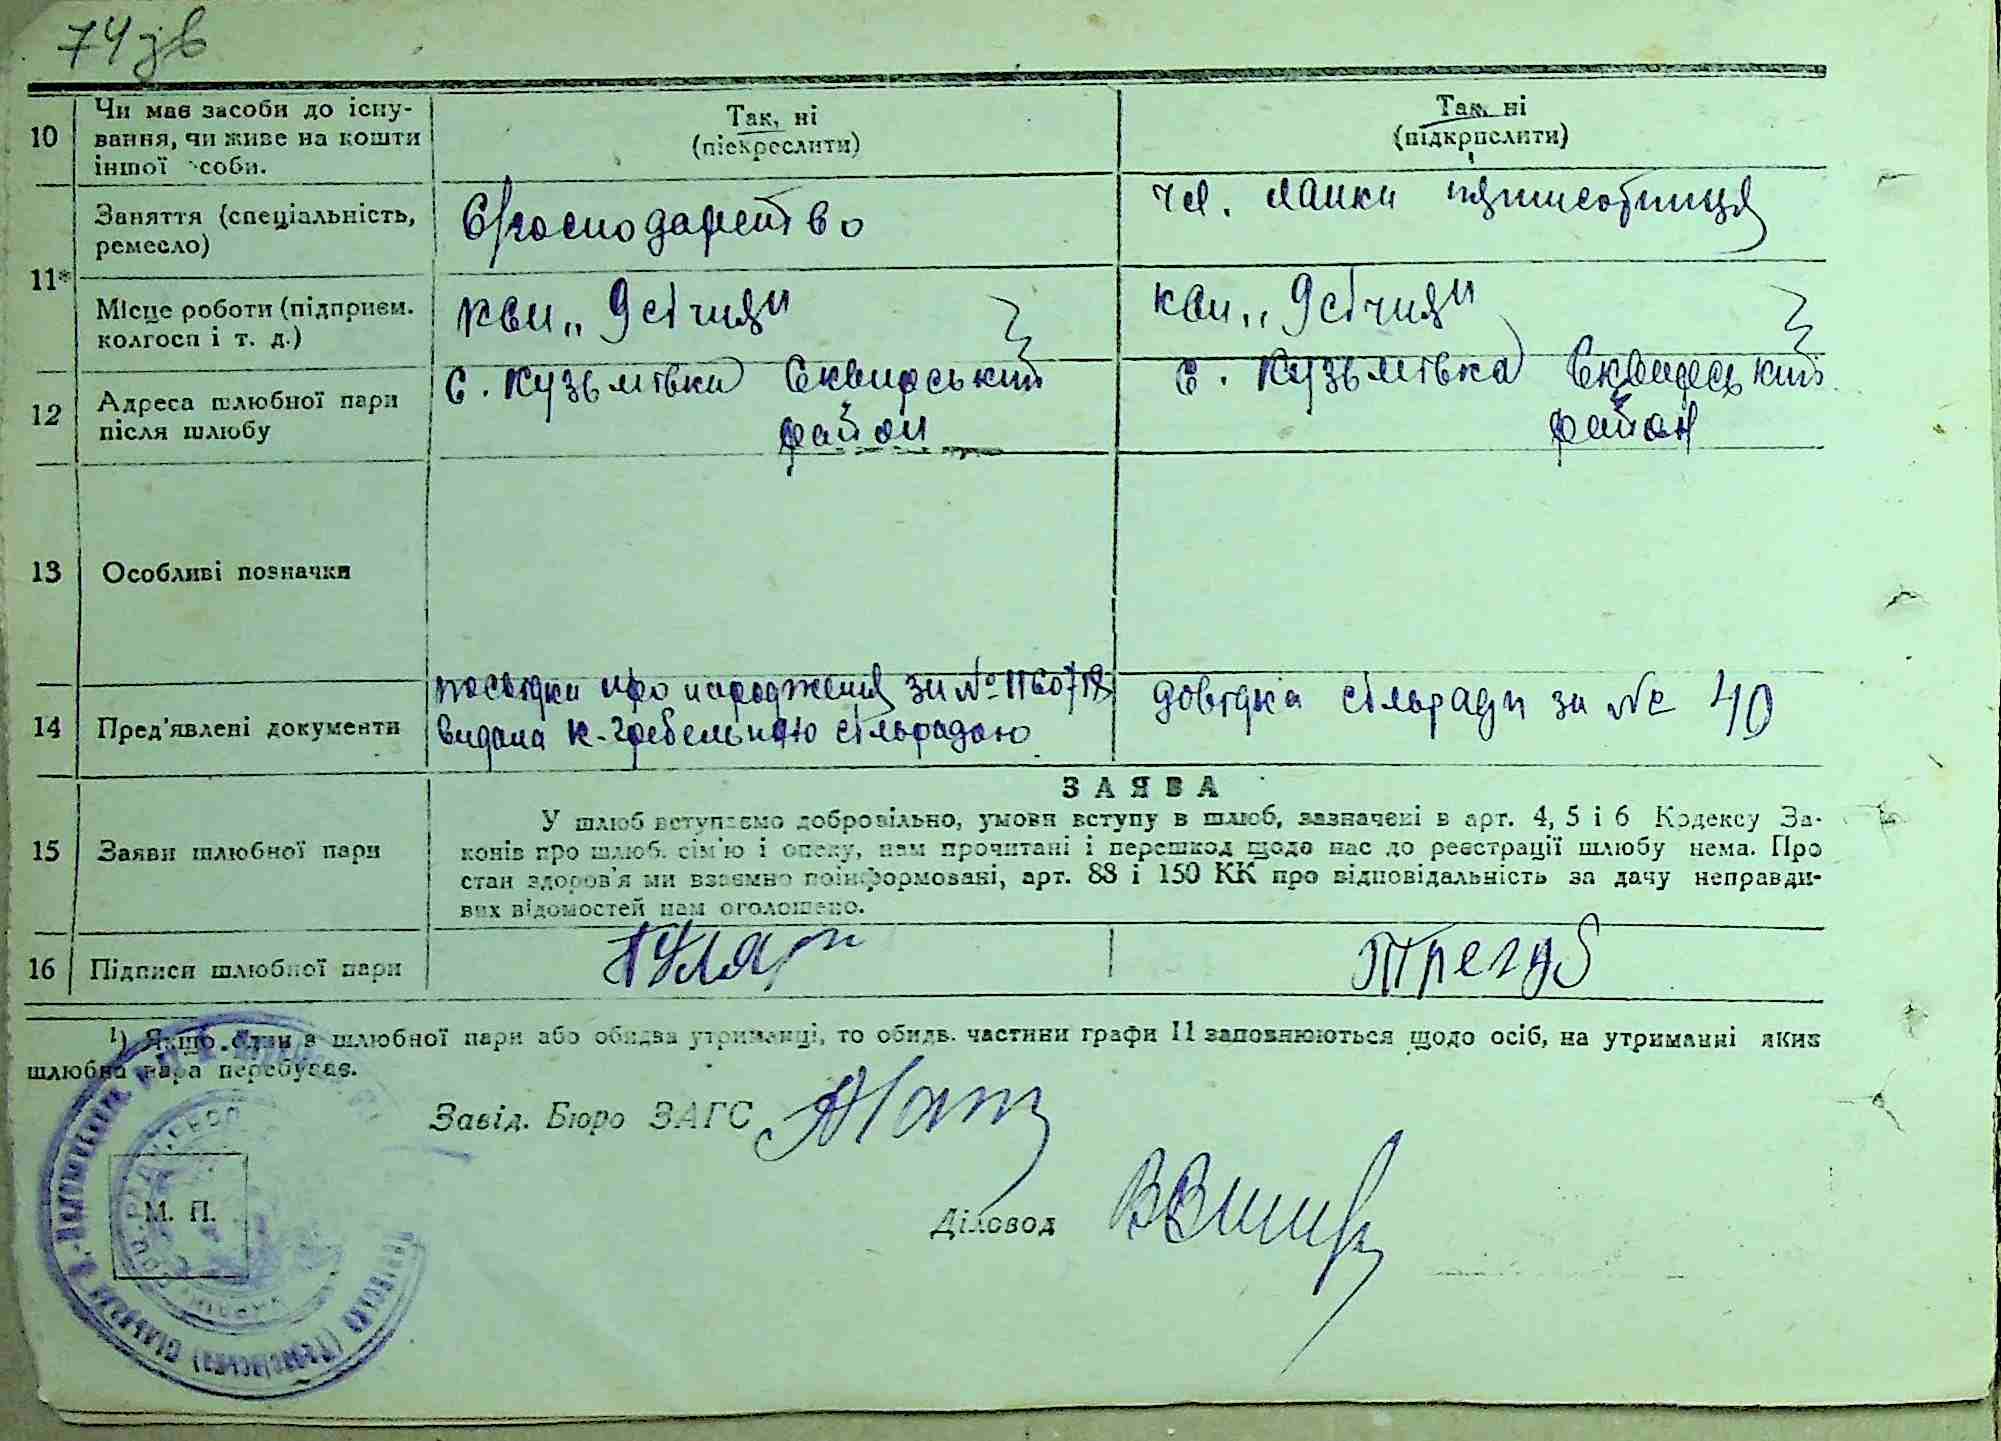 74 зв
10
Чи має засоби до існу-
вання, чи живе на кошти
іншої особи.
Так, ні
(підкреслити)
Так, ні
(підкрислити)
11*
Заняття (спеціальність,
ремесло)
С/господарство
чл. ланки пятисотниця
Місце роботи (підприєм.
колгосп і т. д.)
12
Адреса шлюбної пари
після шлюбу
с. Кузьмівка Сквирський
район
с. Кузьмівка Сквирський
район
13
Особливі позначки
14
Пред'явлені документи
посвідка про народження за №
видана к-гребельною сільрадою
довідка сільради за № 40
15
Заяви шлюбної пари
ЗАЯВА
У шлюб вступаємо добровільно, умови вступу в шлюб, зазначені в арт. 4, 5 і 6 Кодексу За-
конів про шлюб, сім'ю і опеку, нам прочитані і перешкод щодо нас до реєстрації шлюбу нема. Про
стан здоров'я ми взаємно поінформовані, арт. 88 і 150 КК про відповідальність за дачу неправди-
вих відомостей нам оголошено.
16
Підписи шлюбної пари
Трегуб
¹) Якщо один з шлюбної пари або обидва утриманці, то обидв. частини графи 11 заповнюються щодо осіб, на утриманні яких
шлюбна пара перебуває.
Завід. Бюро ЗАГС
М. П.
Діловод